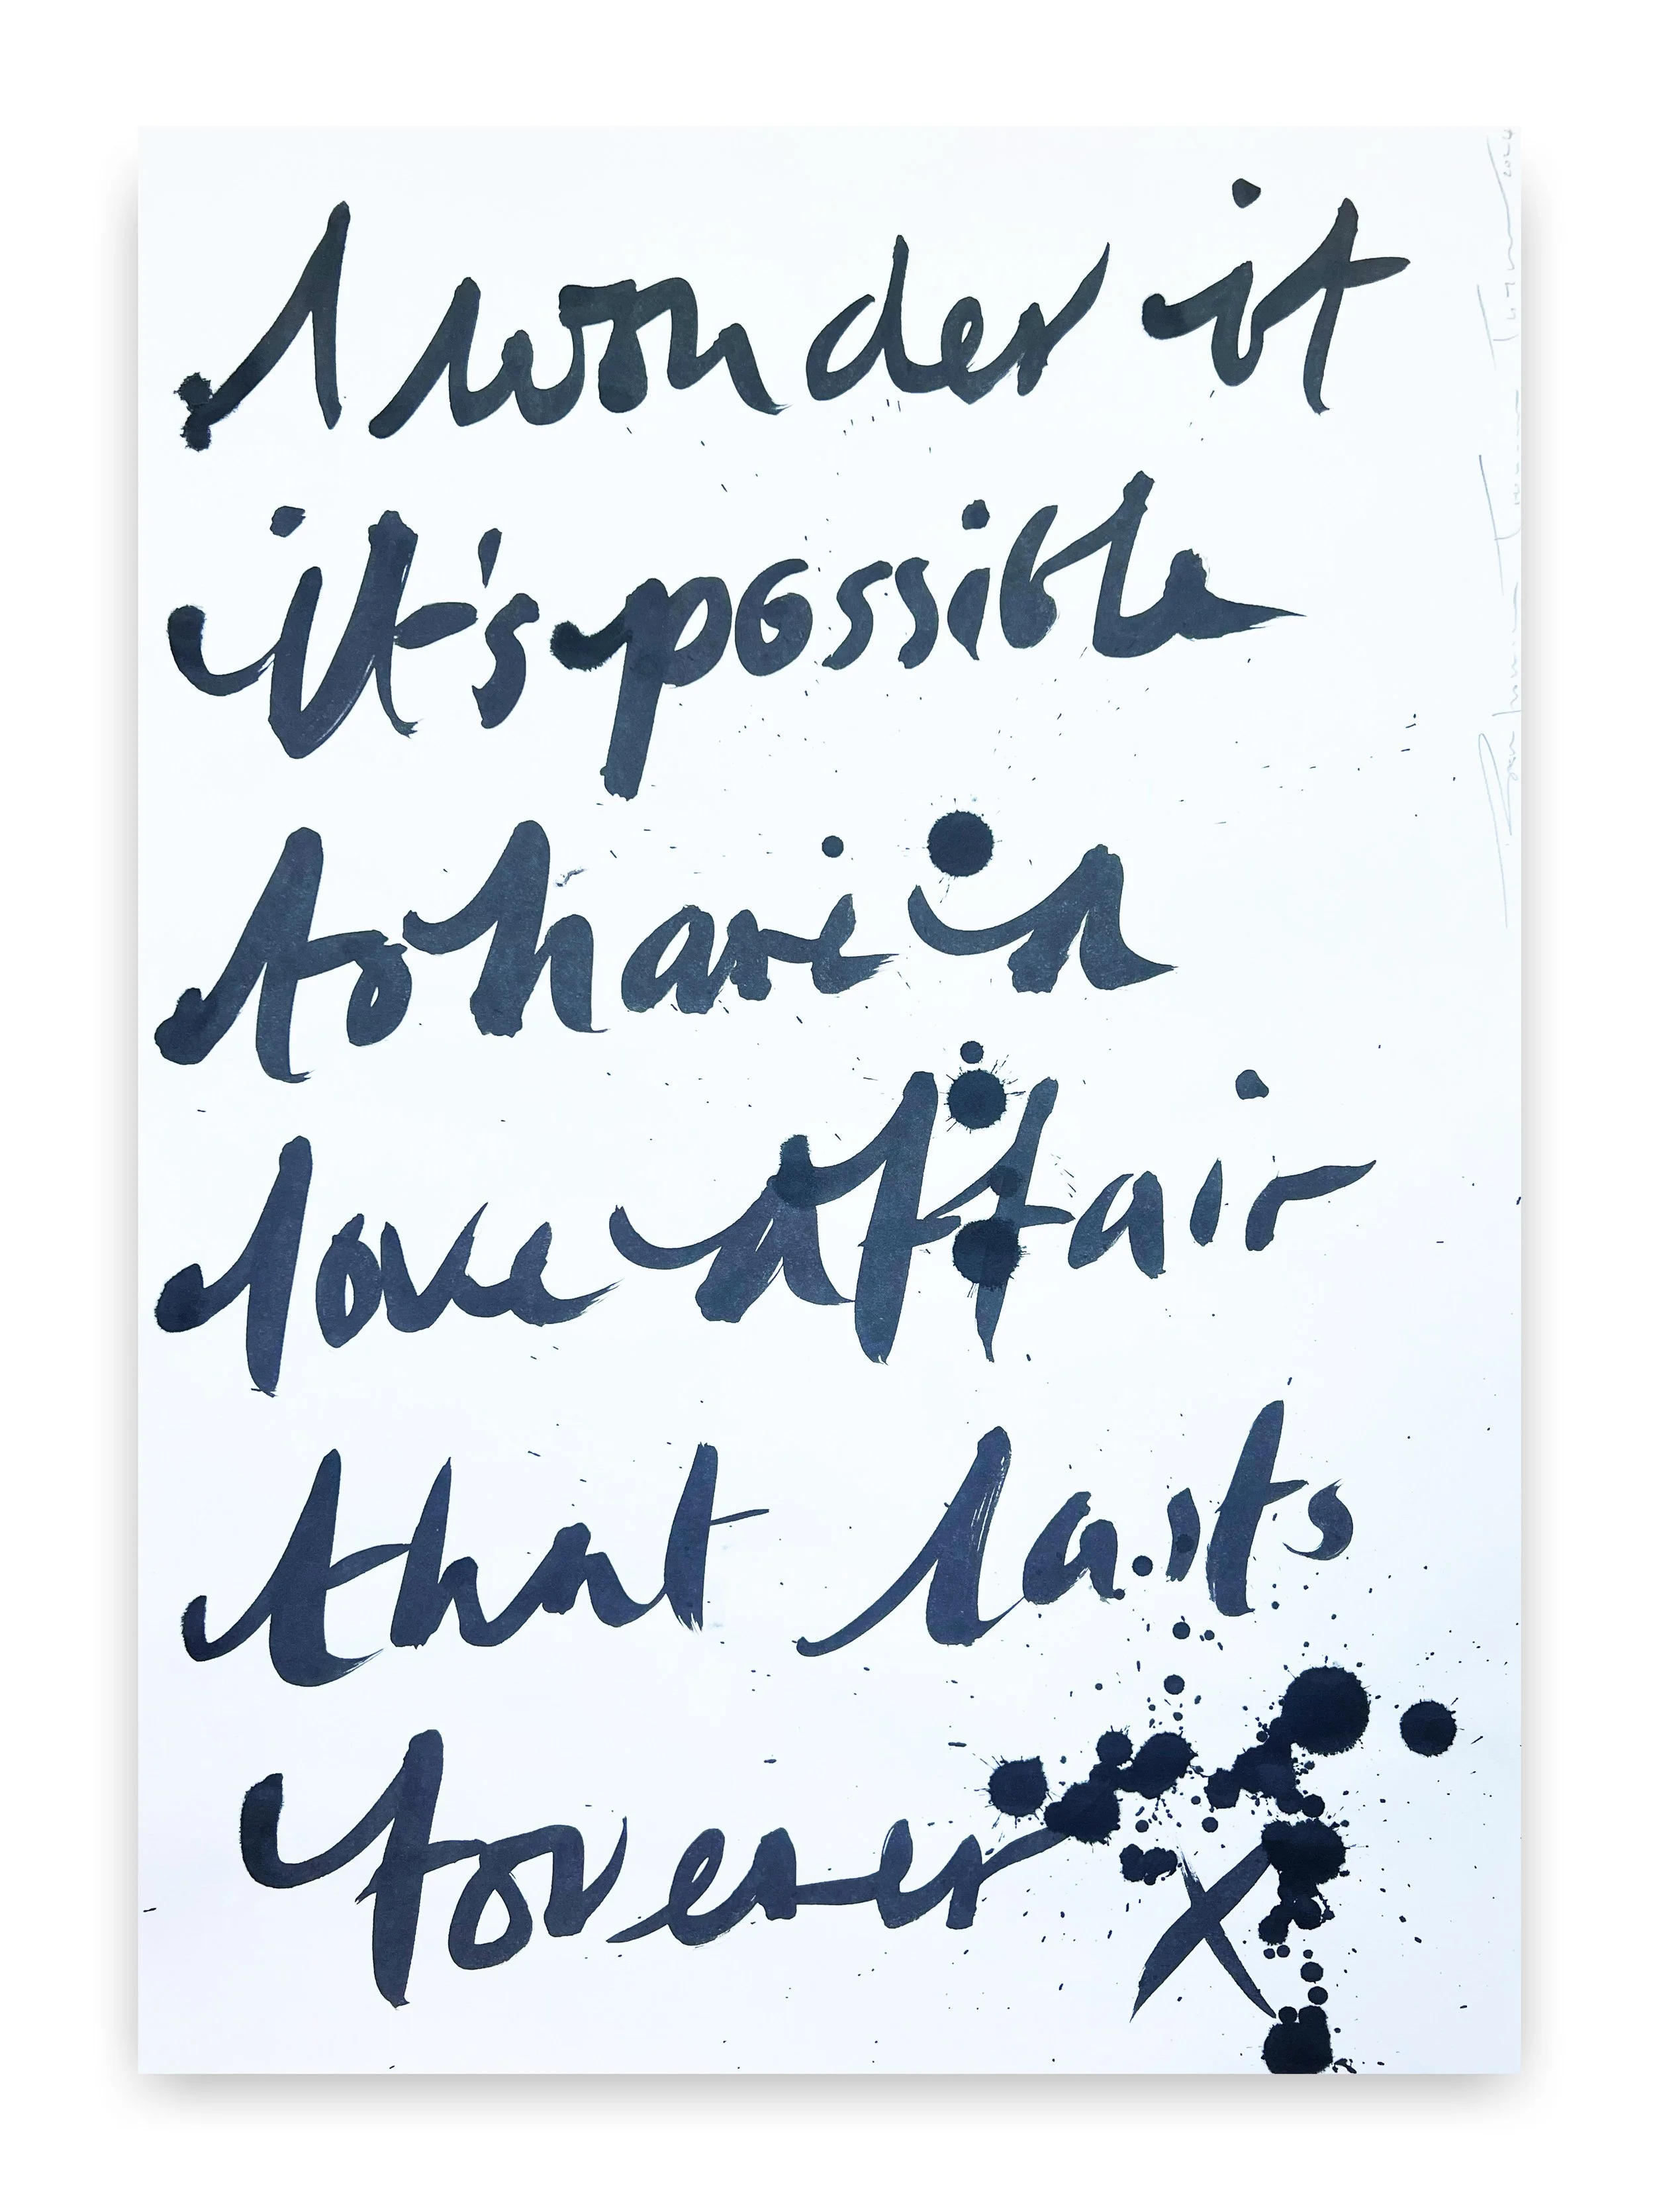 I wonder if
it's possible
to have a
love affair
that lasts
forever x
2024